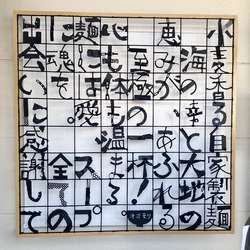 小麦香る自家製麺
海の幸と大地の
恵みがあふれる
至極の一杯!
心も体も温まる
麺には愛スープ
に魂を。全ての
出会いに感謝して